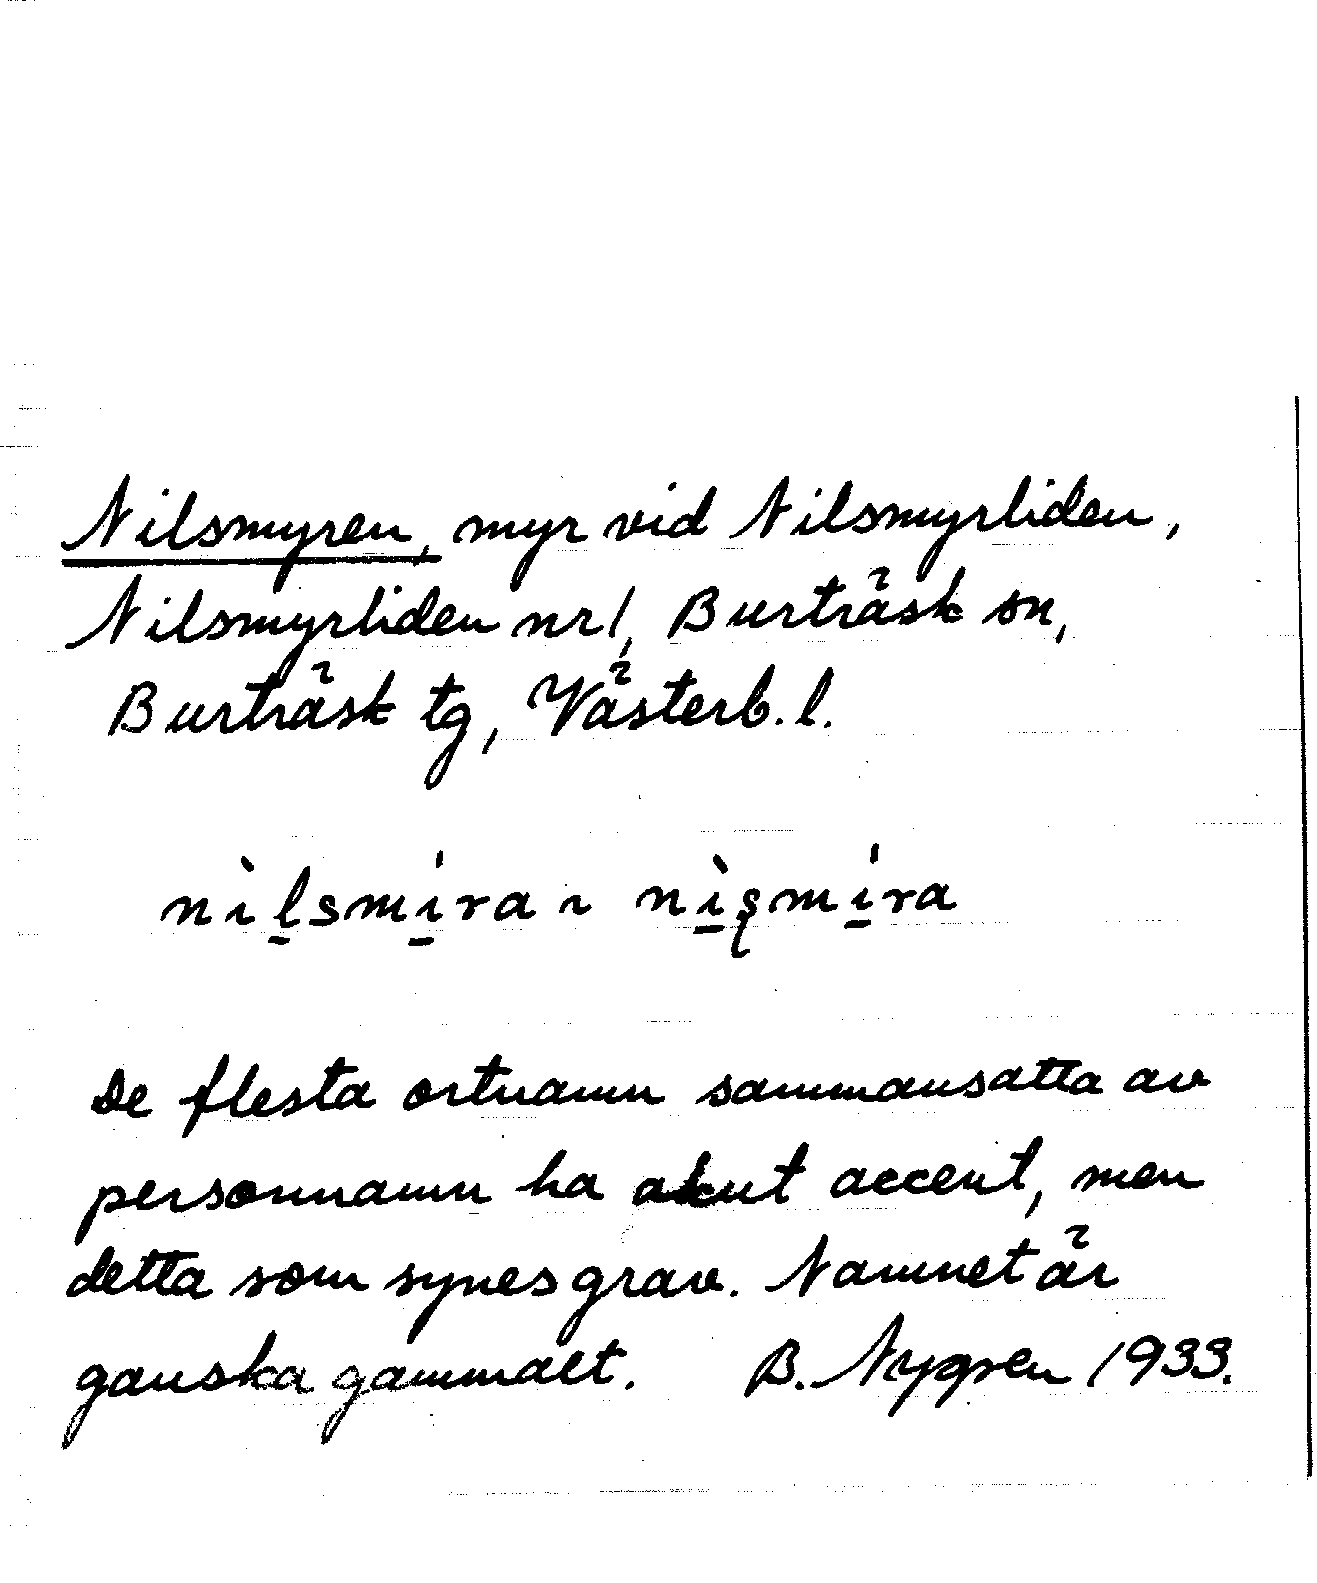 Nilsmyren, myr vid Nilsmyrliden,
Nilsmyrliden nr 1, Burträsk sn,
Burträsk tg, Västerb. l.
nìḻsmi̱ra ı nì̱ʂmi̱ra
De flesta ortnamn sammansatta av
personnamn ha akut accent, men
detta som synes grav. Namnet är
ganska gammalt. B. Nygren 1933.